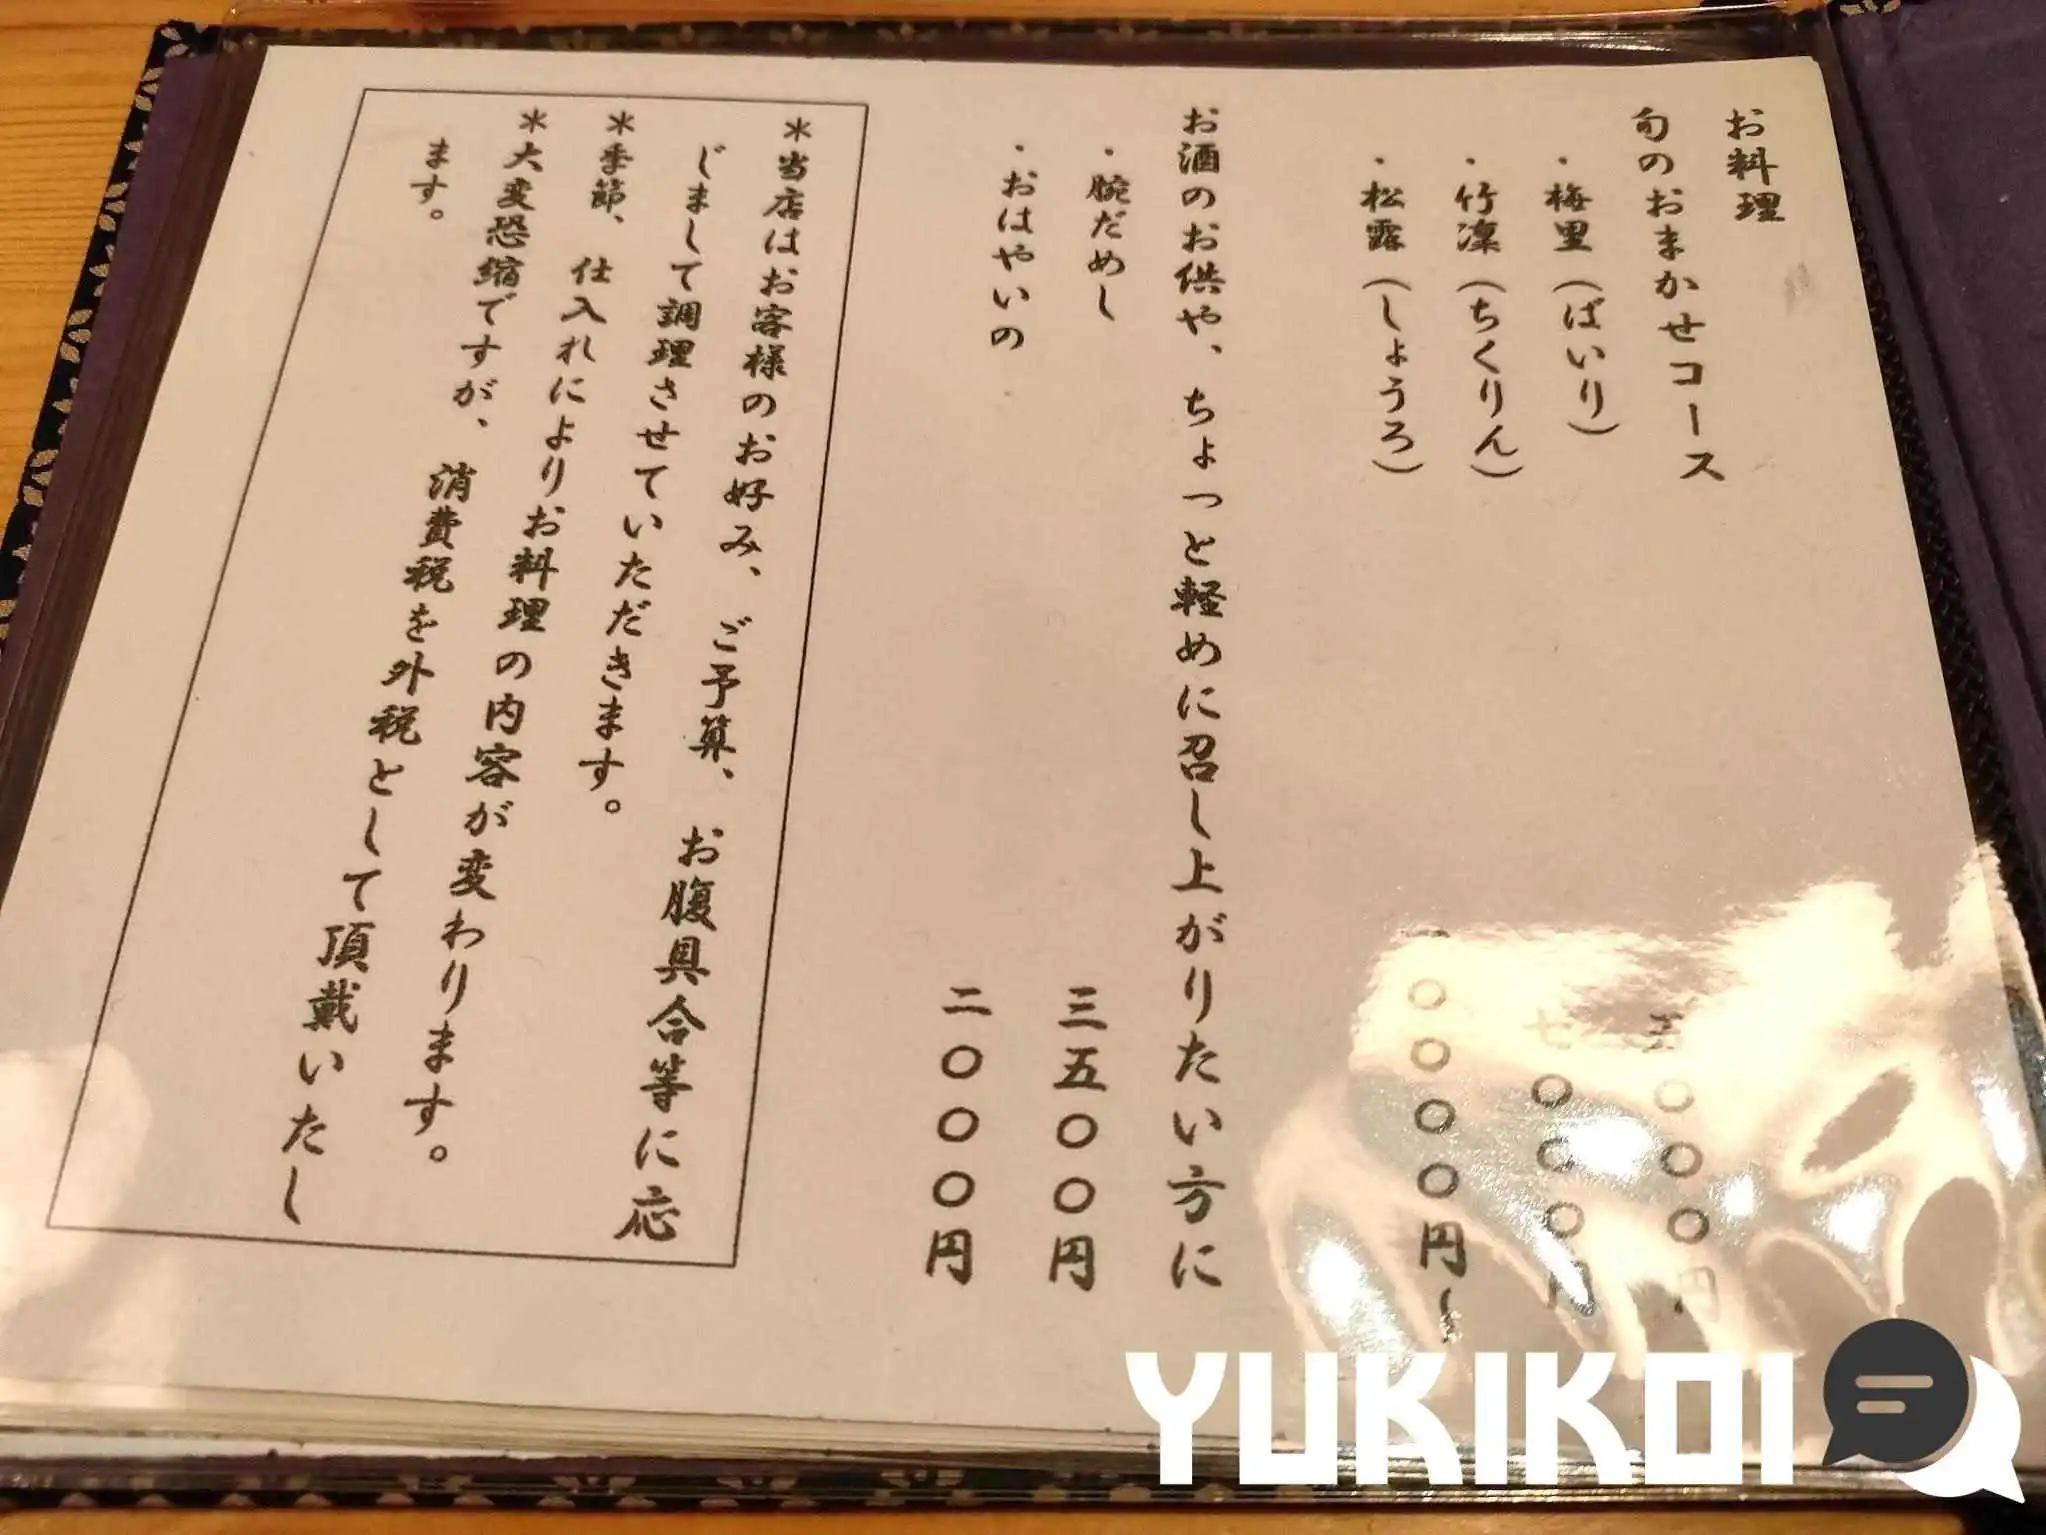 お料理
旬のおまかせコース
・梅里（ばいり） 五〇〇〇円
・竹凜（ちくりん） 七〇〇〇円
・松露（しょうろ） 〇〇〇〇円〜
お酒のお供や、ちょっと軽めに召し上がりたい方に
・腕だめし 三五〇〇円
・おはやいの 二〇〇〇円
＊当店はお客様のお好み、ご予算、お腹具合等に応
じまして調理させていただきます。
＊季節、仕入れによりお料理の内容が変わります。
＊大変恐縮ですが、消費税を外税として頂戴いたし
ます。
YUKIKOI